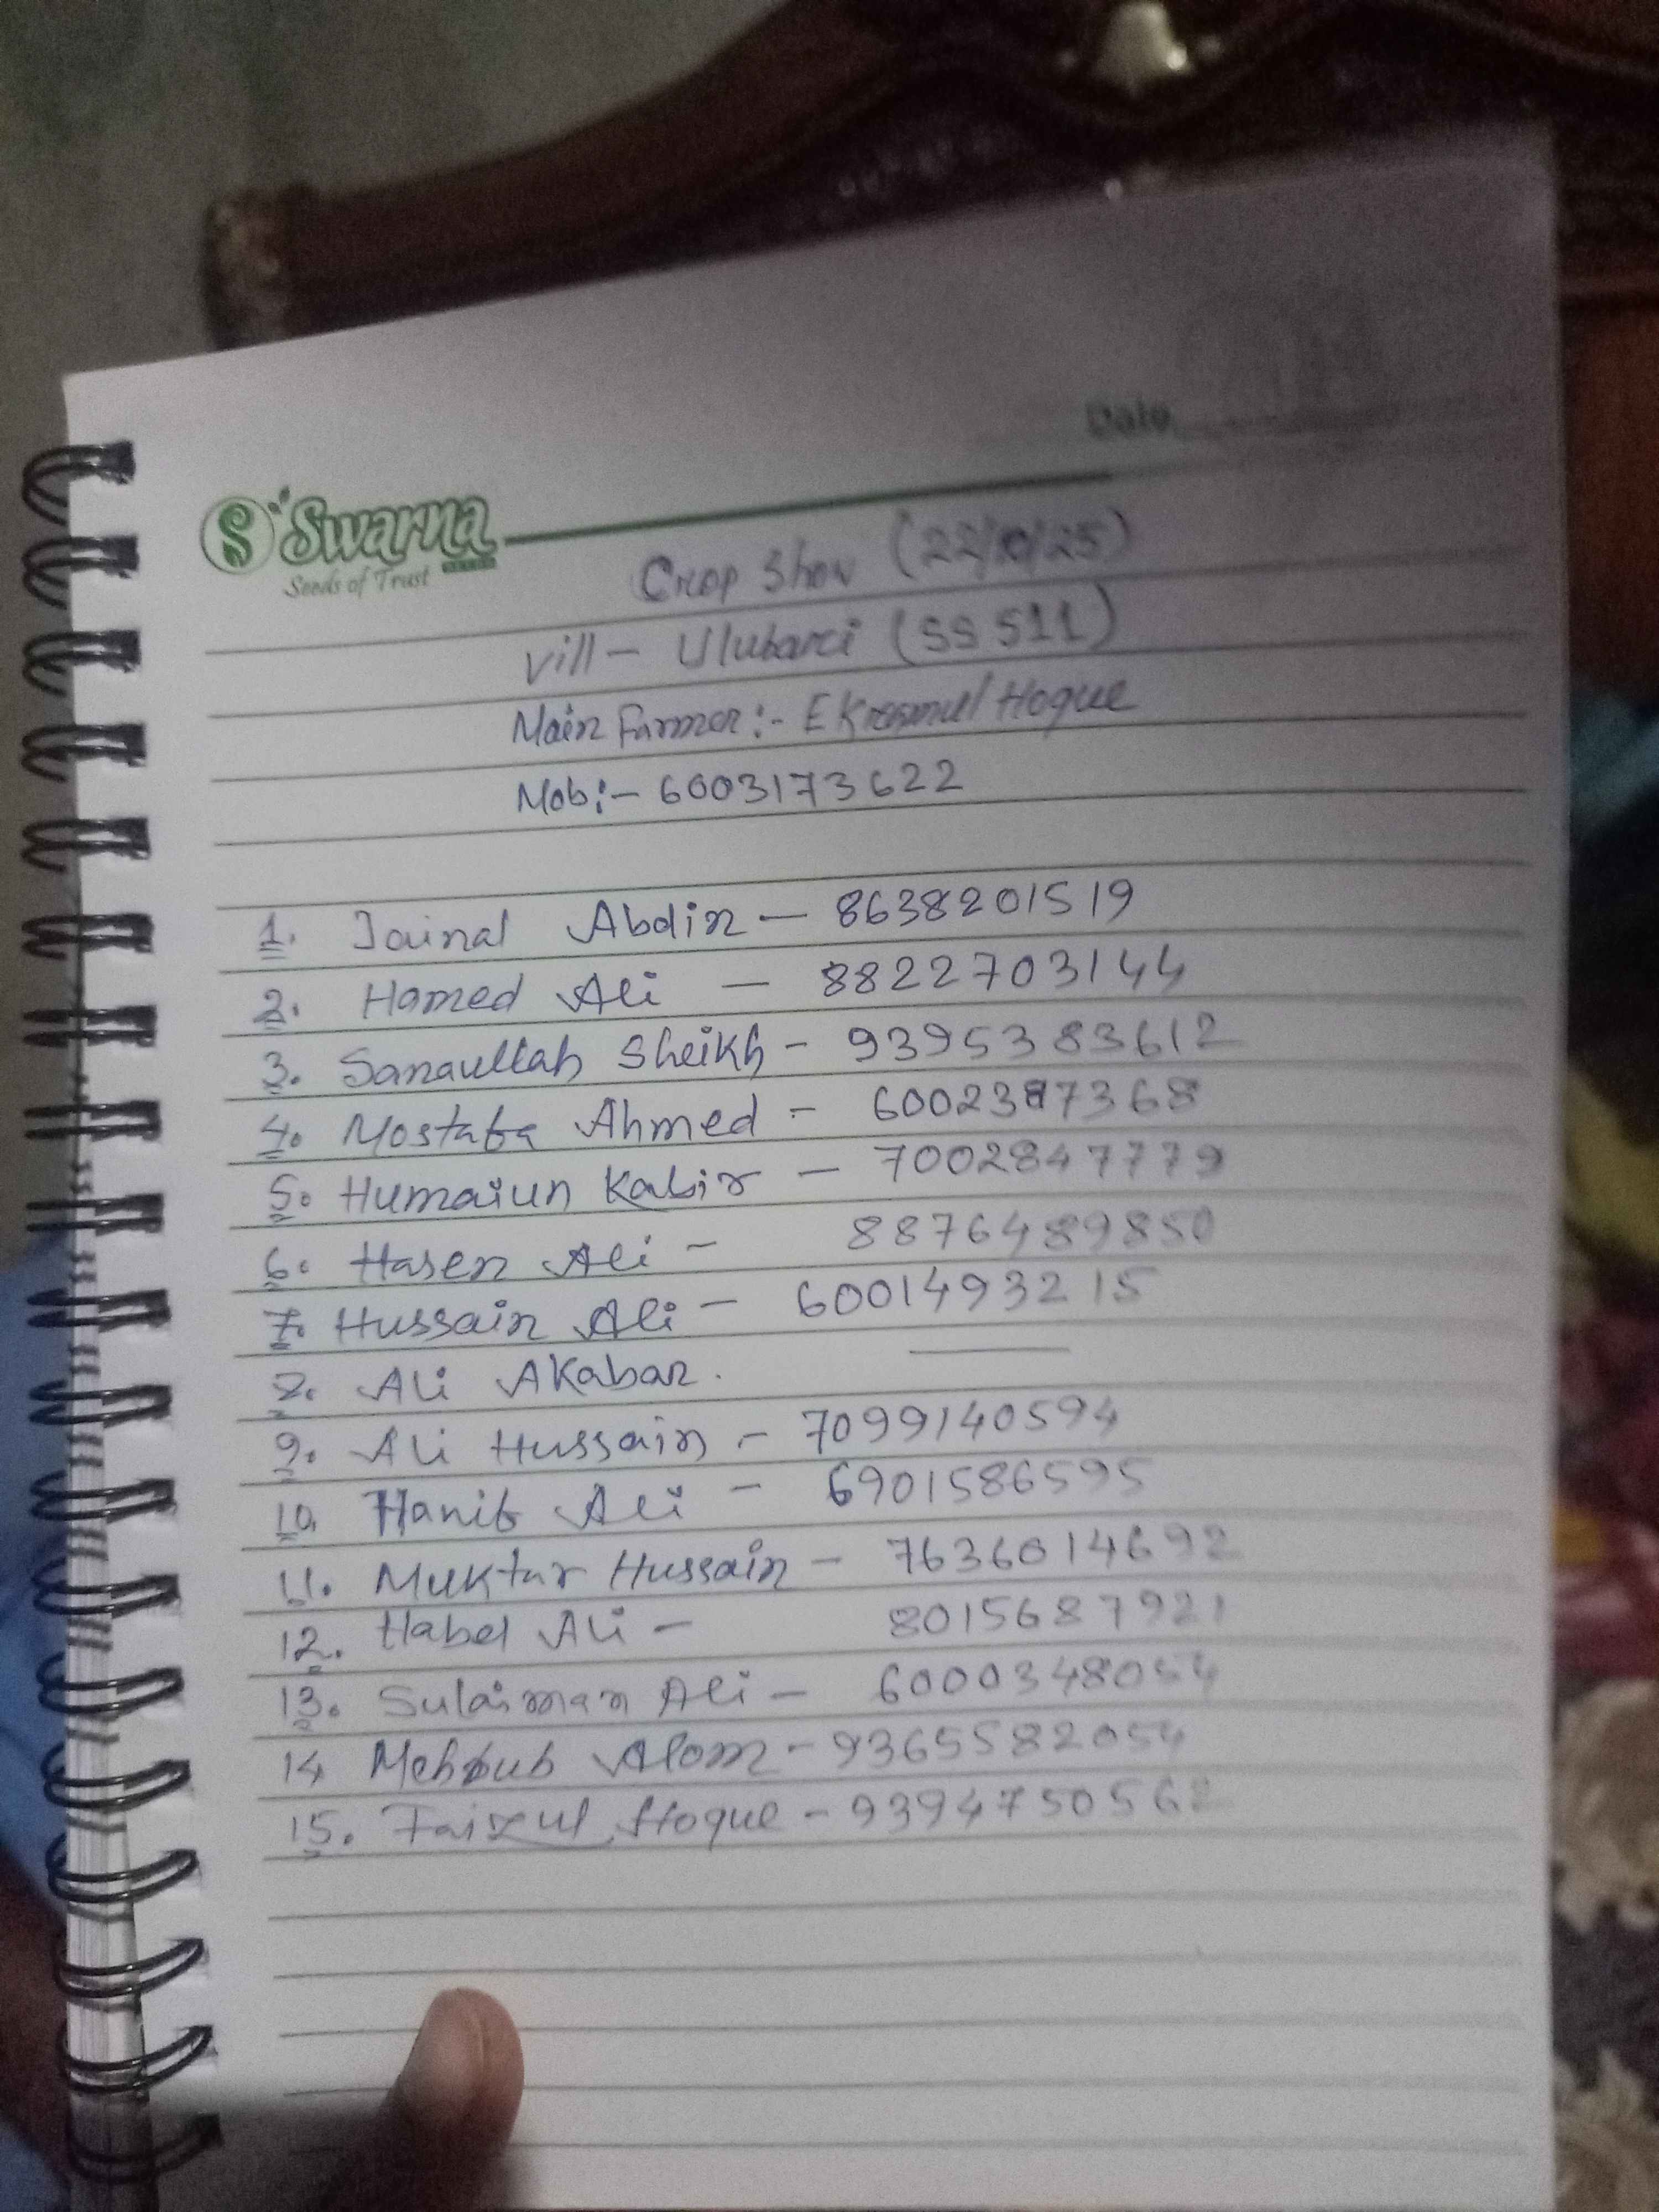 Date
Swarna
Seeds of Trust
Crop Show (22/10/25)
Vill- Ulubari (SS 511)
Main Farmer:- Ekramul Hoque
Mob:- 6003173622
1. Jainal Abdin - 8638201519
2. Hamed Ali - 8822703144
3. Sanaullah Sheikh - 9395383612
4. Mostafa Ahmed - 6002387368
5. Humaiun Kabir - 7002847779
6. Hasen Ali - 8876489850
7. Hussain Ali - 6001493215
8. Ali Akabar.
9. Ali Hussain - 7099140594
10. Hanif Ali - 6901586595
11. Muktar Hussain - 7636014692
12. Habel Ali - 8015687921
13. Sulaiman Ali - 6000348054
14 Mehbub Alom - 9365582054
15. Faizul Hoque - 9394750562